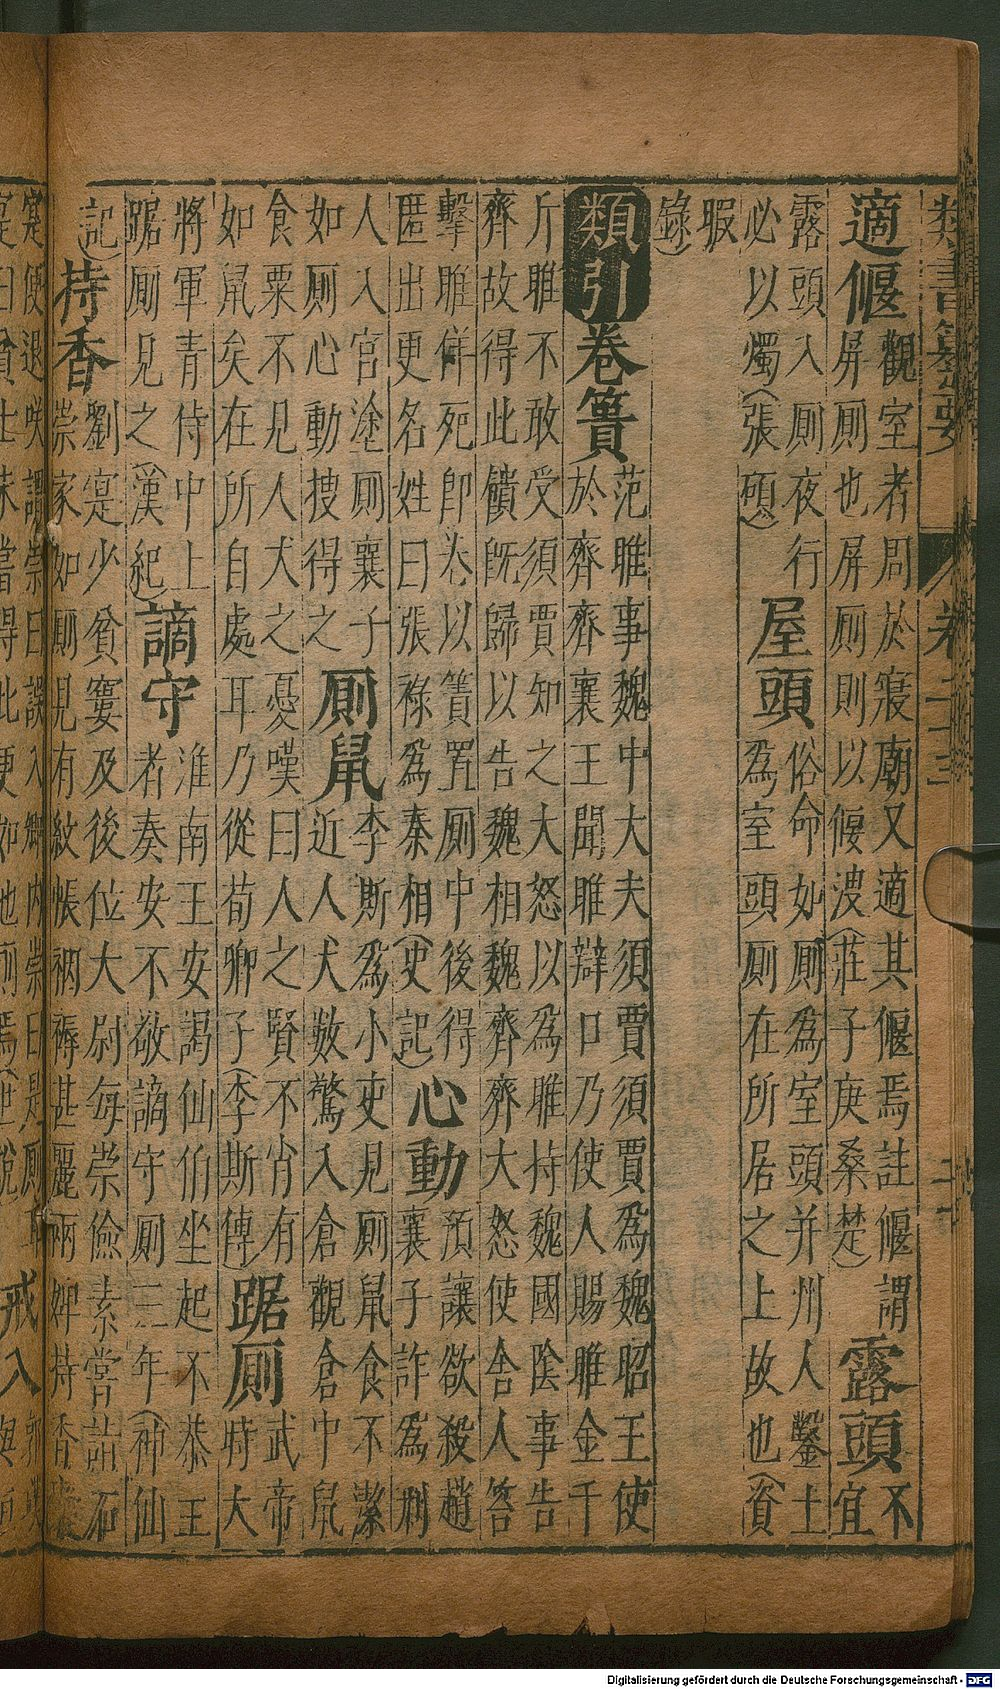 類書纂要 卷二十三
適偃 觀室者周於寢廟又適其偃焉註偃謂
屏厠也屏厠則以偃溲(莊子庚桑楚) 露頭 不
宜
露頭入厠夜行
必以燭(張碩) 屋頭 俗命如厠為室頭并州人鑿土
為室頭厠在所居之上故也(資
暇
錄)
類引 卷簀 范雎事魏中大夫須賈須賈為魏昭王使
於齊齊襄王聞雎辯口乃使人賜雎金千
斤雎不敢受須賈知之大怒以為雎持魏國陰事告
齊故得此饋既歸以告魏相魏齊齊大怒使舍人笞
擊雎佯死卽卷以簀置厠中後得
匿出更名姓曰張祿為秦相(史記) 心動 預讓欲殺趙
襄子詐為刑
人入宮塗厠襄子
如厠心動搜得之 厠鼠 李斯為小吏見厠鼠食不潔
近人犬數驚入倉觀倉中鼠
食粟不見人犬之憂嘆曰人之賢不肖有
如鼠矣在所自處耳乃從荀卿子(李斯傳) 踞厠 武帝
時大
將軍青侍中上
踞厠見之(漢紀) 謫守 淮南王安謁仙伯坐起不恭王
者奏安不敬謫守厠三年(神仙
記) 持香 劉寔少貧窶及後位大尉每崇儉素嘗詣石
崇家如厠見有紋帳裀褥甚麗兩婢持香囊
寔便退咲謂崇曰誤入卿內崇曰是厠耳
寔曰貧士未嘗得此更如他厠焉(世說 戒入
Digitalisierung gefördert durch die Deutsche Forschungsgemeinschaft - DFG